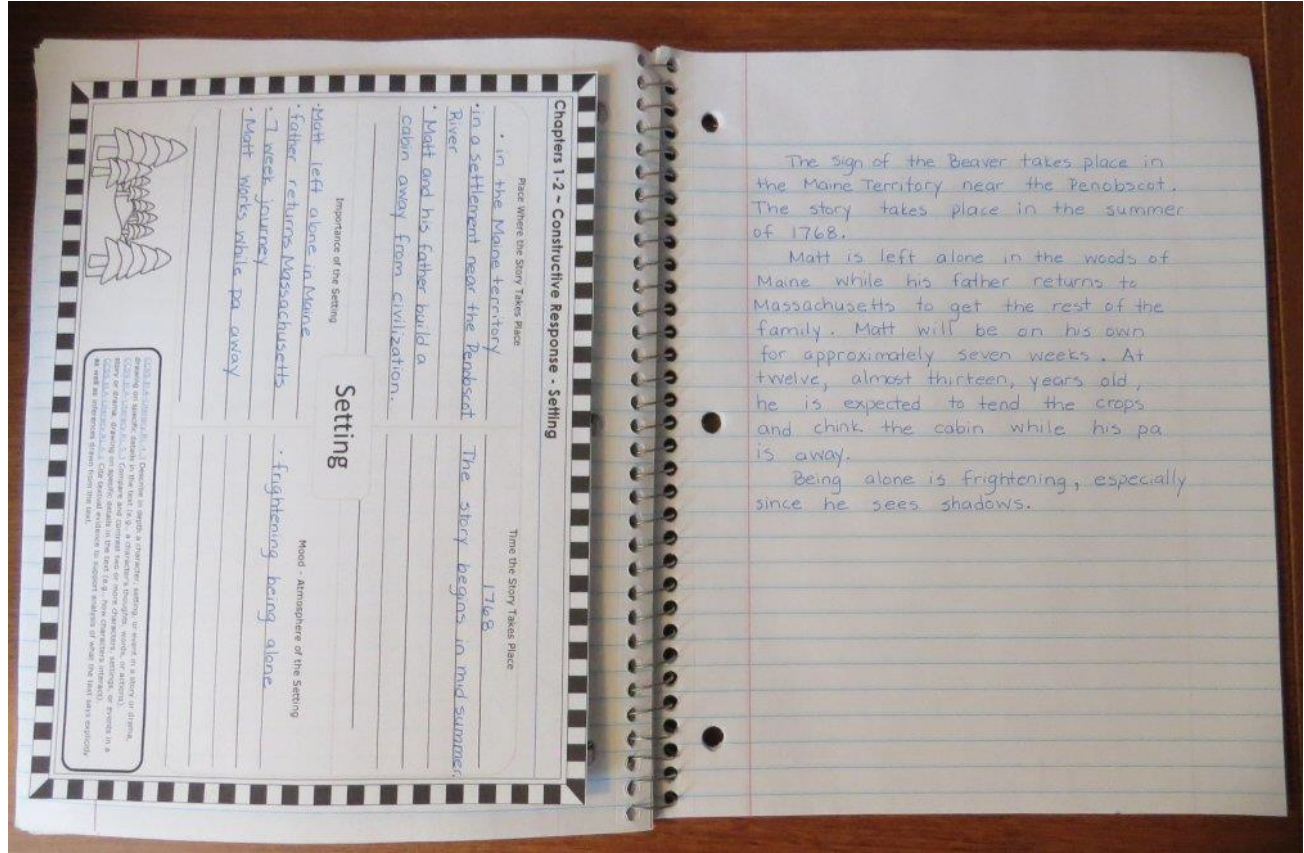 Chapters 1-2 ~ Constructive Response - Setting
Place Where the Story Takes Place
• in the Maine territory
• in a settlement near the Penobscot
River
• Matt and his father build a
cabin away from civilization.
Time the Story Takes Place
1768
The story begins in mid summer.
Setting
Importance of the Setting
• Matt left alone in Maine
• father returns Massachusetts
• 7 week journey
• Matt works while pa away
Mood - Atmosphere of the Setting
• frightening being alone
Describe in depth a character, setting, or event in a story or drama,
drawing on specific details in the text (e.g., a character's thoughts, words, or actions).
Compare and contrast two or more characters, settings, or events in a
story or drama, drawing on specific details in the text (e.g., how characters interact).
Cite textual evidence to support analysis of what the text says explicitly
as well as inferences drawn from the text.
The Sign of the Beaver takes place in
the Maine Territory near the Penobscot.
The story takes place in the summer
of 1768.
Matt is left alone in the woods of
Maine while his father returns to
Massachusetts to get the rest of the
family. Matt will be on his own
for approximately seven weeks. At
twelve, almost thirteen, years old,
he is expected to tend the crops
and chink the cabin while his pa
is away.
Being alone is frightening, especially
since he sees shadows.